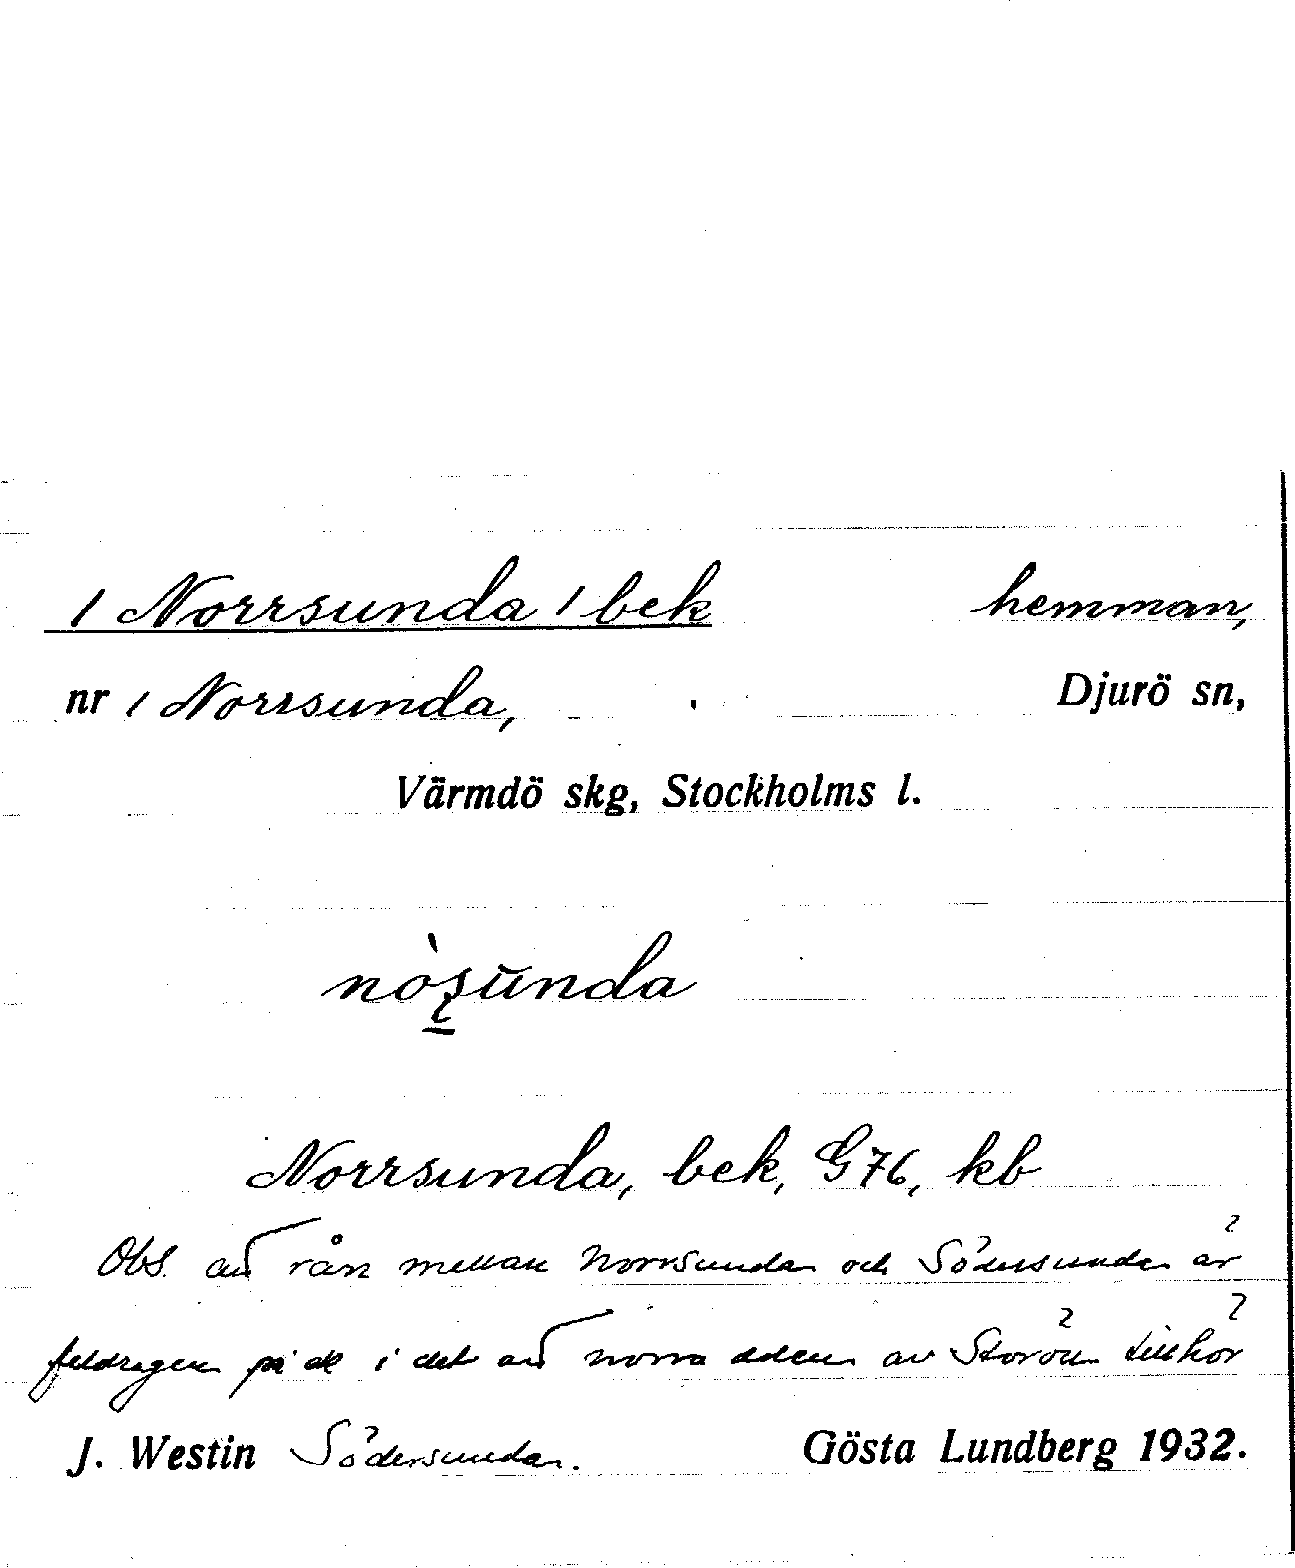 1 Norrsunda 1 bek hemman,
nr 1 Norrsunda, Djurö sn,
Värmdö skg, Stockholms l.
nòʂunda
Norrsunda, bek, G76, kb
Obs. att rån mellan Norrsunda och Södersunda är
feldragen på ek i det att norra delen av Storön tillhör
J. Westin Södersunda. Gösta Lundberg 1932.